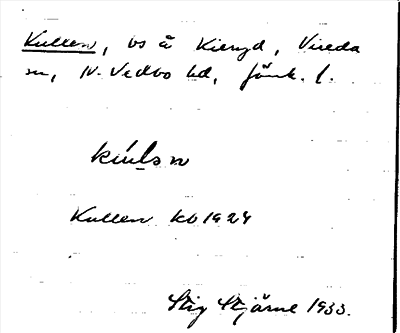 Kullen, bs å Kieryd, Vireda
sn, N. Vedbo hd, Jönk. l.
Kullen kb 1924
Stig Stjärne 1933.